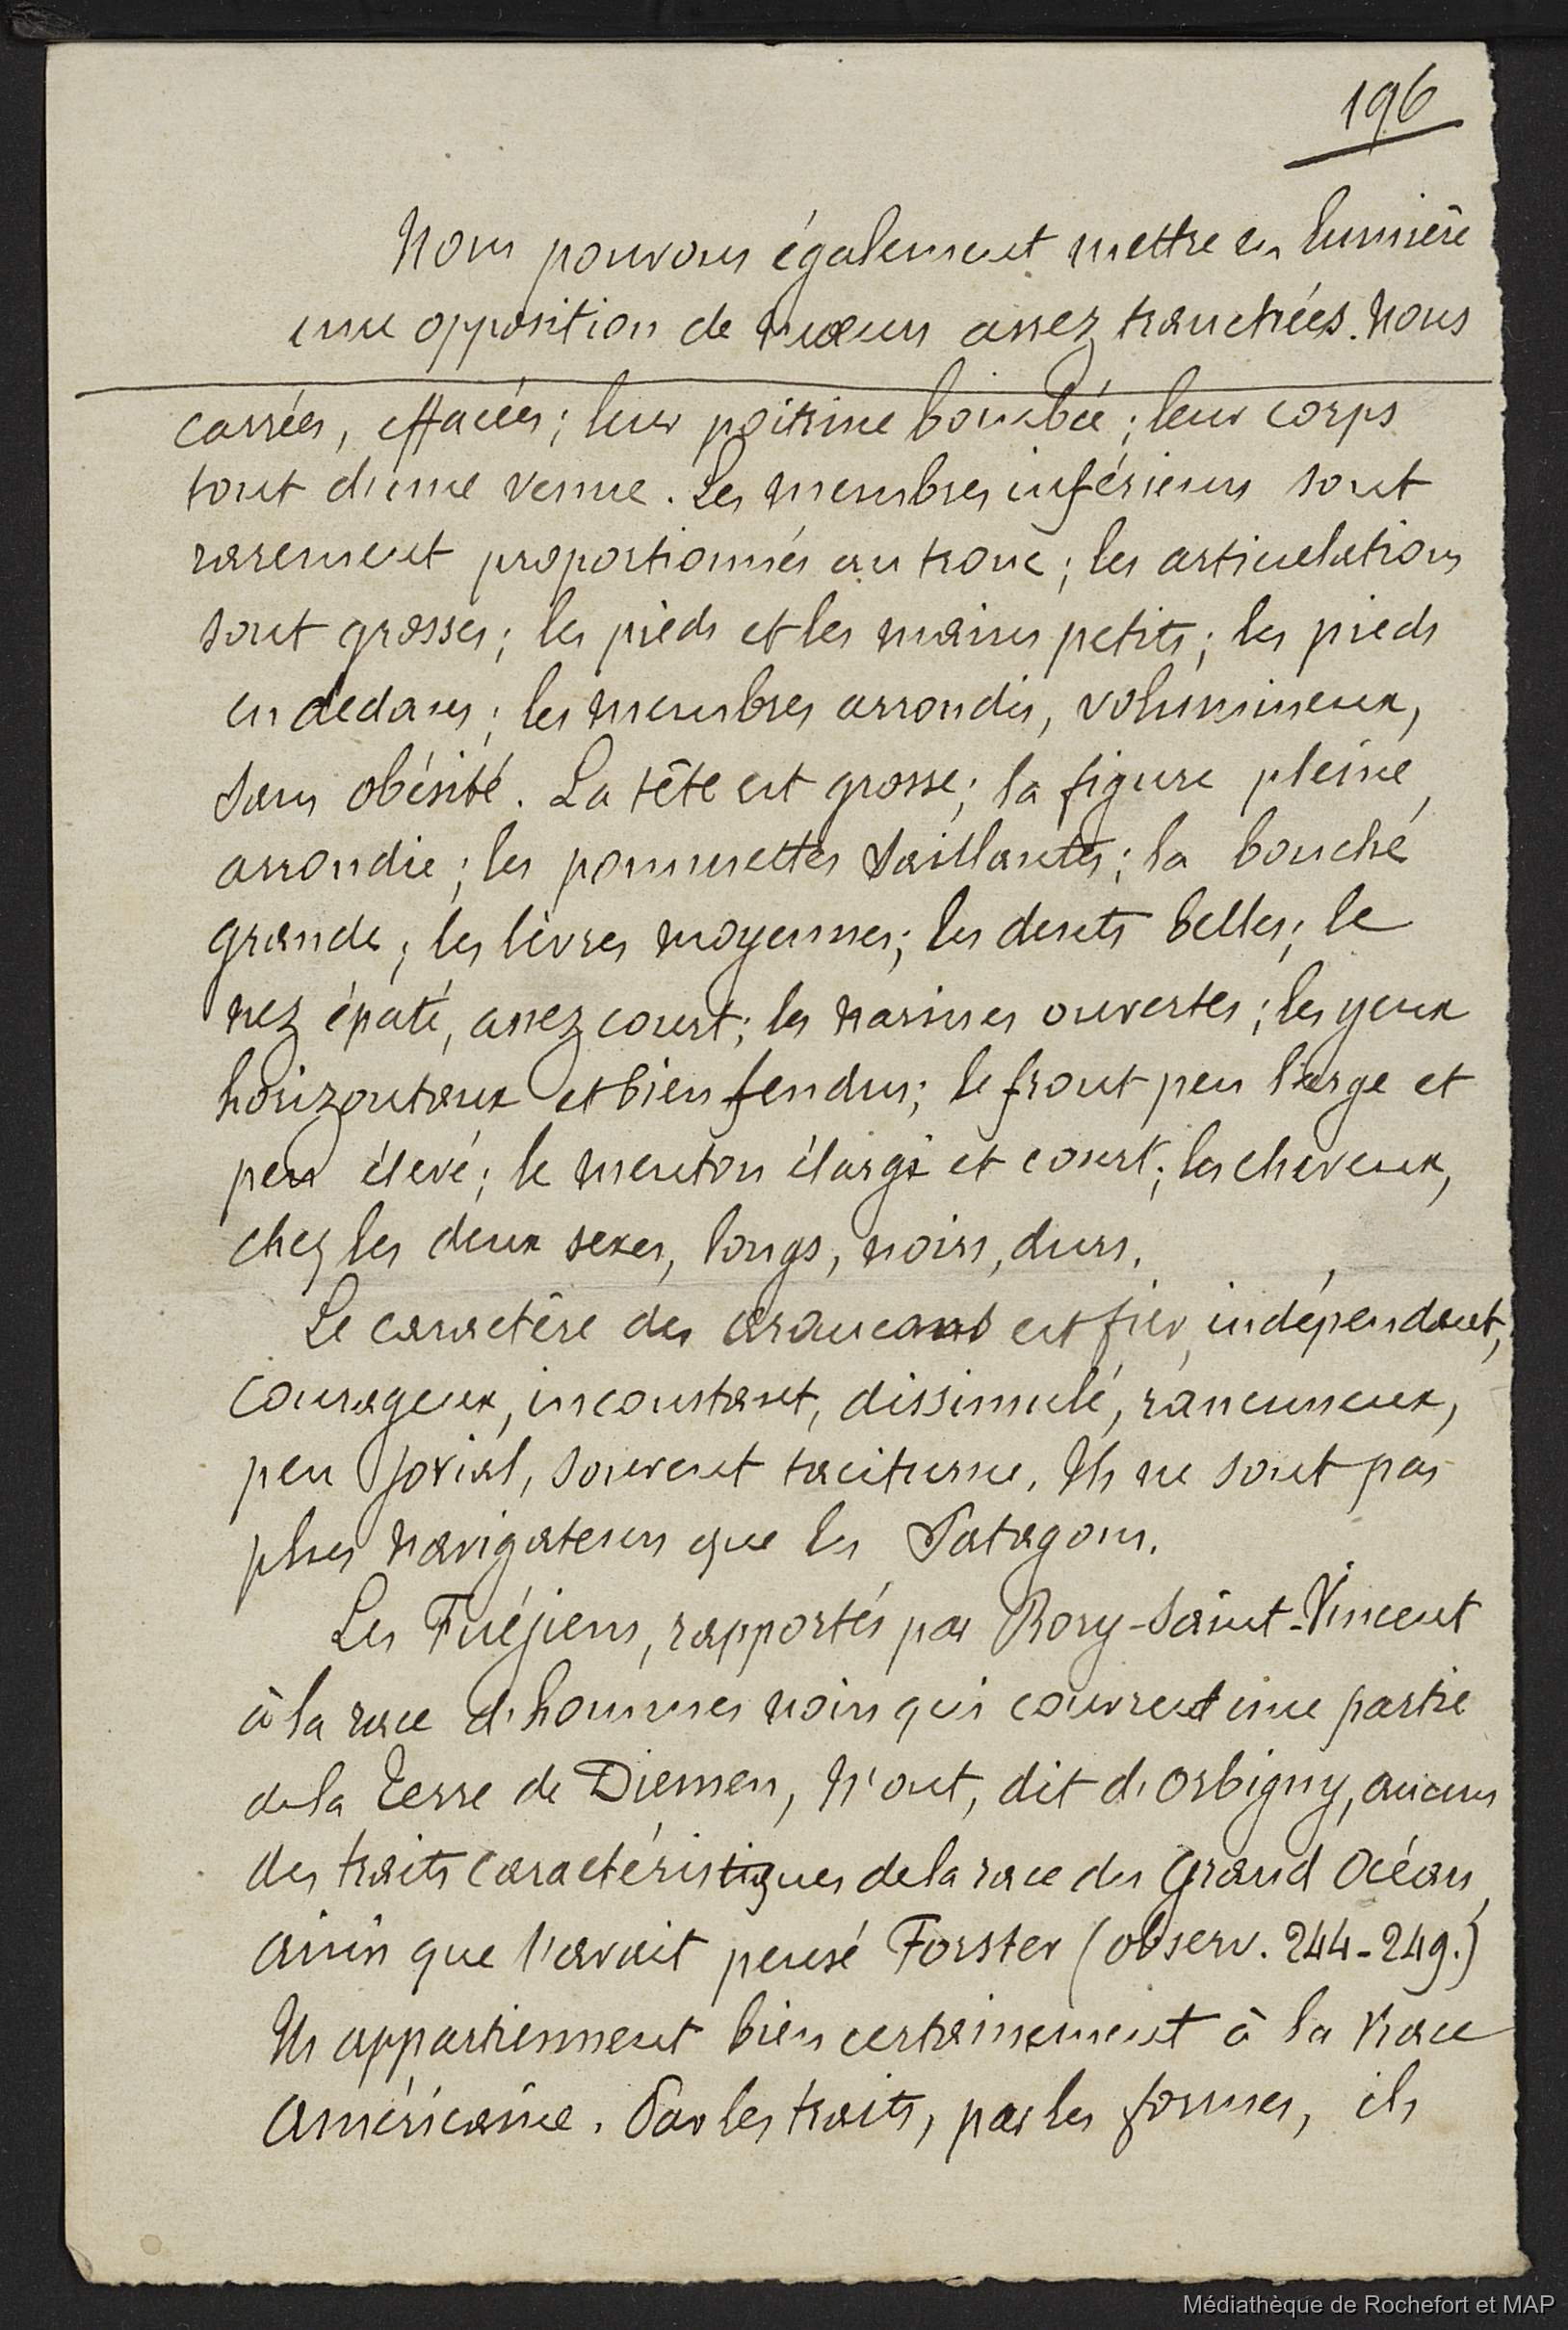 196
Nous pouvons également mettre en lumière
une opposition de mœurs assez tranchées. Nous
carrées, effacées ; leur poitrine bombée ; leur corps
tout d'une venue. Les membres inférieurs sont
rarement proportionnés au tronc ; les articulations
sont grosses ; les pieds et les mains petits ; les pieds
en dedans ; les membres arrondis, volumineux,
sans obésité. La tête est grosse ; la figure pleine,
arrondie ; les pommettes saillantes ; la bouche
grande ; les lèvres moyennes ; les dents belles ; le
nez épaté, assez court ; les narines ouvertes ; les yeux
horizontaux et bien fendus ; le front peu large et
peu élevé ; le menton élargi et court ; les cheveux,
chez les deux sexes, longs, noirs, durs.
Le caractère des araucans est fier, indépendant,
courageux, inconstant, dissimulé, rancuneux,
peu jovial, souvent taciturne. Ils ne sont pas
plus navigateurs que les Patagons.
Les Fuégiens, rapportés par Bory-Saint-Vincent
à la race d'hommes noirs qui couvrent une partie
de la Terre de Diemen, n'ont, dit d'Orbigny, aucun
des traits caractéristiques de la race du Grand Océan,
ainsi que l'avait pensé Forster (observ. 244-249.)
Ils appartiennent bien certainement à la race
Américaine. Par les traits, par les formes, ils
Médiathèque de Rochefort et MAP